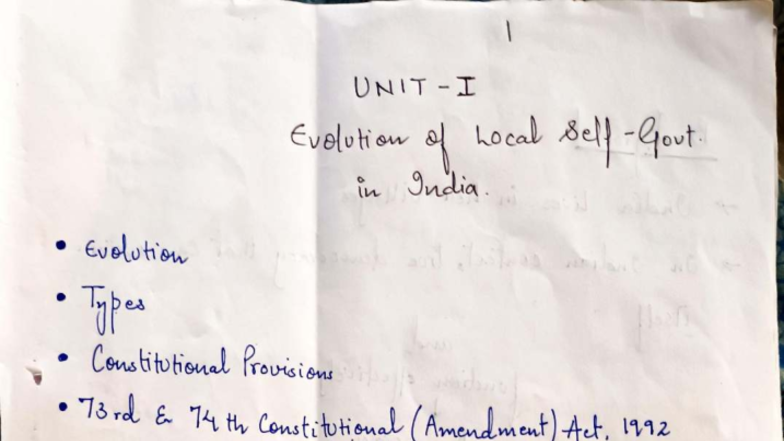 1
UNIT - I
Evolution of Local Self-Govt.
in India.
• Evolution
• Types
• Constitutional Provisions
• 73rd & 74th Constitutional (Amendment) Act, 1992